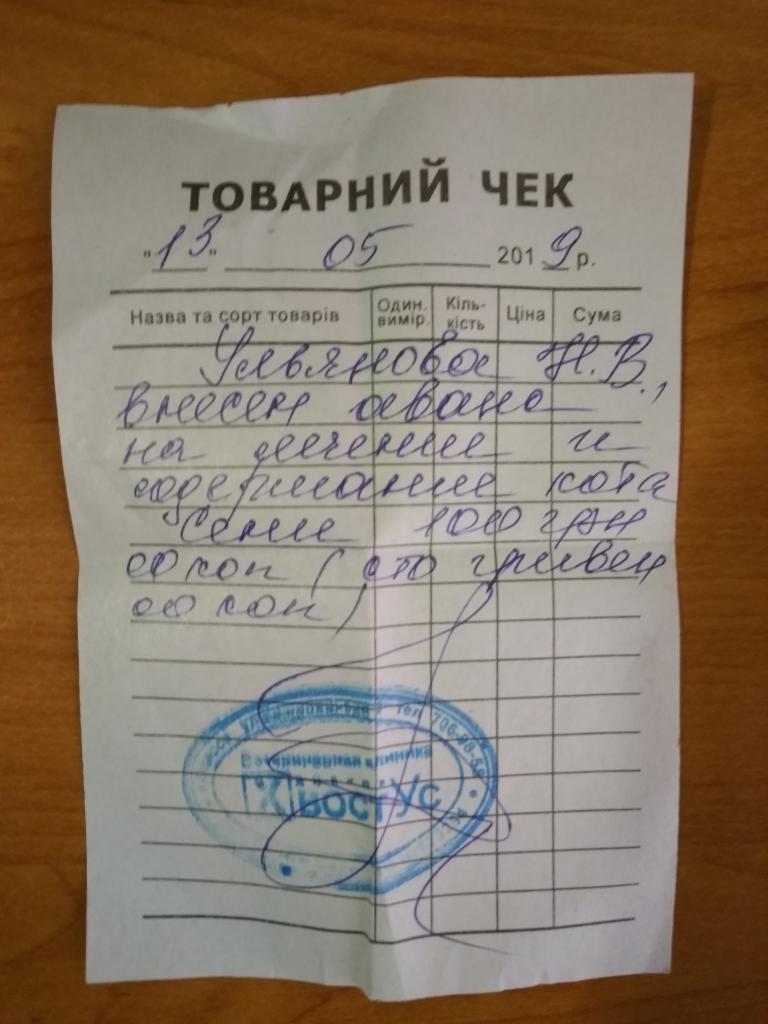 ТОВАРНИЙ ЧЕК
"13" 05 2019 р.
Назва та сорт товарів Один. вимір. Кіль-кість Ціна Сума
Ульяновва Н.В.,
внесен аванс
на лечение и
содержание кота
Сени 100 грн
00 коп (сто гривен
00 коп)
тел. 706-98-
Ветеринарная клиника
ХВОСТ УС